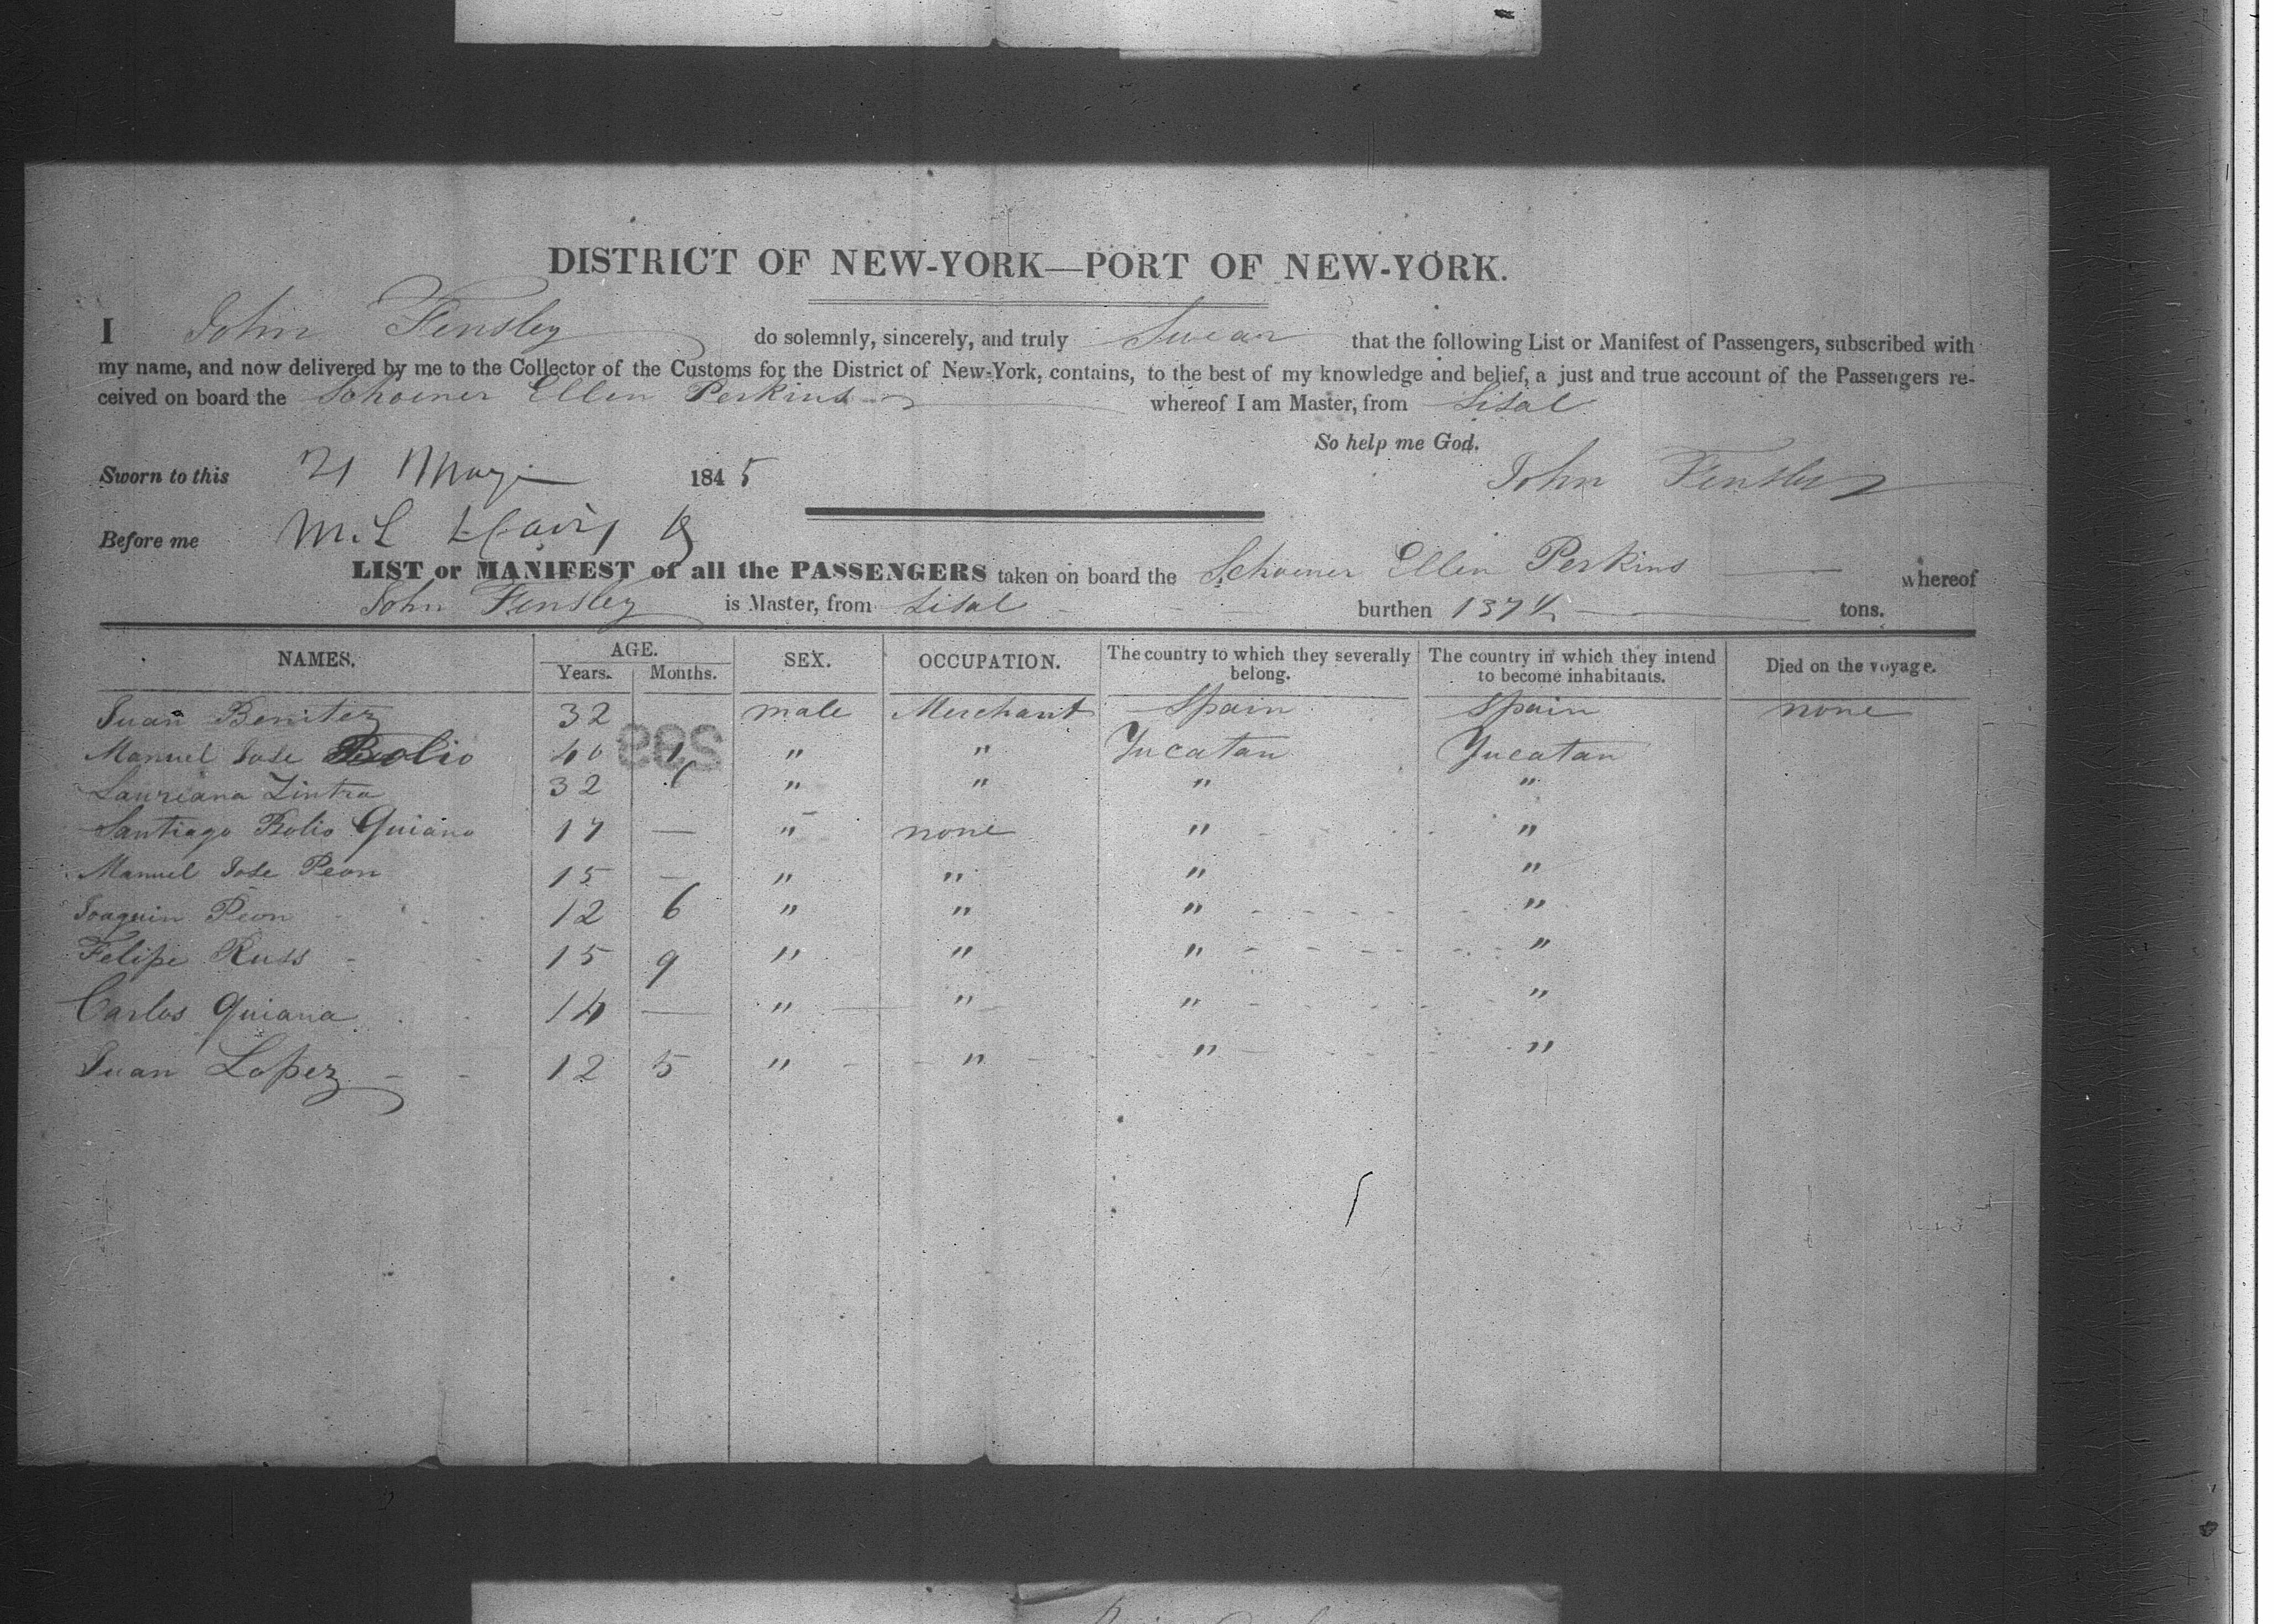 DISTRICT OF NEW-YORK—PORT OF NEW-YORK.
I John Tensley do solemnly, sincerely, and truly Swear that the following List or Manifest of Passengers, subscribed with
my name, and now delivered by me to the Collector of the Customs for the District of New-York, contains, to the best of my knowledge and belief, a just and true account of the Passengers re-
ceived on board the Schoener Ellen Perkins whereof I am Master, from Sisal
So help me God.
Sworn to this 21 May 1845 John Tensley
Before me M. L
LIST or MANIFEST of all the PASSENGERS taken on board the Schoener Ellen Perkins whereof
John Tensley is Master, from Sisal burthen 137 tons.
NAMES. AGE. SEX. OCCUPATION. The country to which they severally belong. The country in which they intend to become inhabitants. Died on the voyage.
Years. Months.
Juan Benitez 32 male Merchant Spain Spain none
Manuel Jose Bolio 40 " " Yucatan Yucatan
Laureana Zintra 32 " " " "
Santiago Bolio Quiano 17 — " none " "
Manuel Jose Peon 15 — " " " "
Joaquin Peon 12 6 " " " "
Felipe Russ 15 9 " " " "
Carlos Quiana 14 — " " " "
Juan Lopez 12 5 " " " "